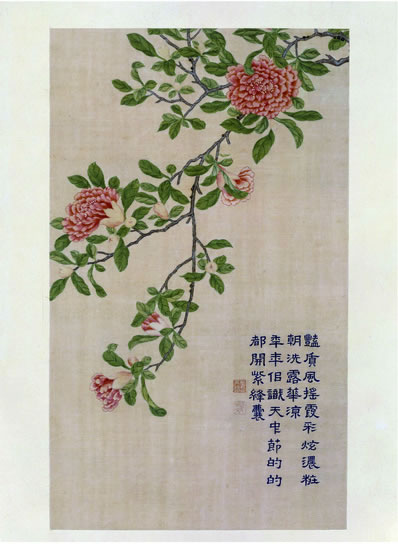 豔質風搖霞彩炫濃粧
朝洗露華涼
秊秊佀識天中節的的
都開紫絳囊